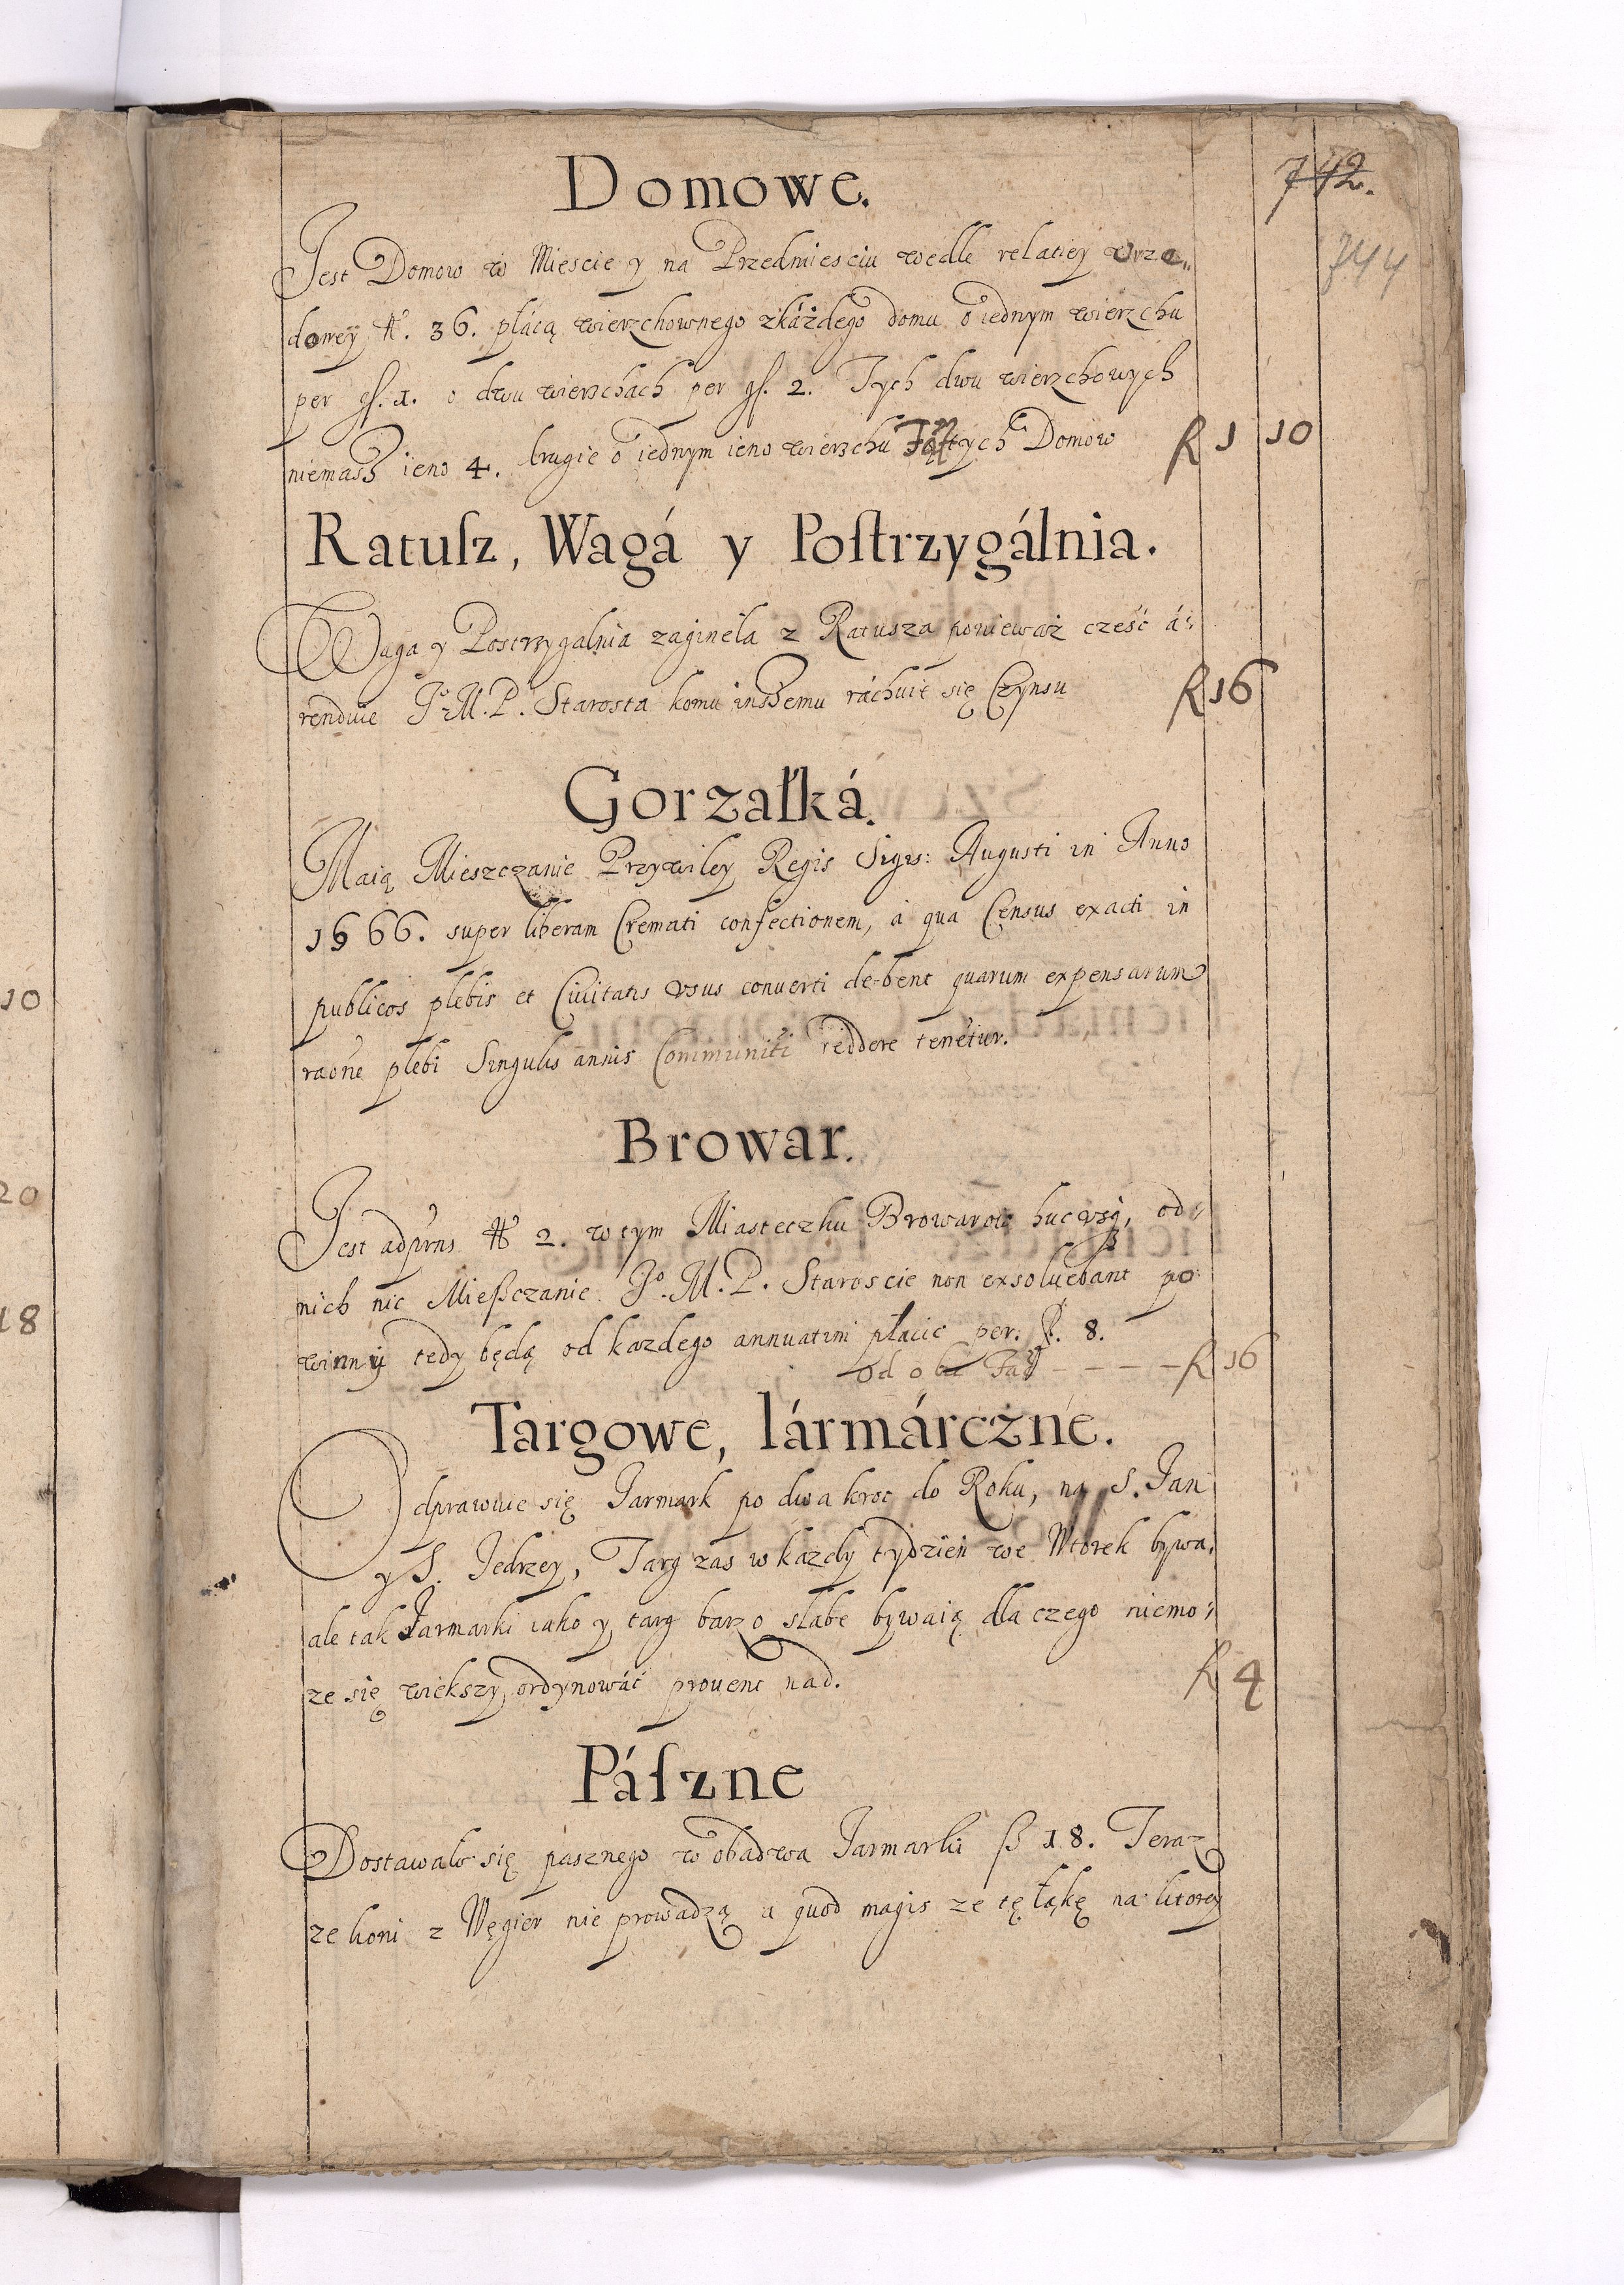 742.
744
Domowe.
Jest Domow w Miescie y na Przedmiesciu wedle relatiey Vrzę„
dowey No. 36. płácą wierzchownego zkáżdego domu o iednym wierzchu
per gſ. 1. o dwu wierzchách per gſ. 2. Tych dwu wierzchowych
niemasz ieno 4. drugie o iednym ieno wierzchu tych Domow R 1 10
Ratuſz, Wagá y Poſtrzygálnia.
Waga y Postrzygalnia zaginela z Ratusza ponieważ cześć á„
renduie Jo. M. P. Starosta komu inszemu ráchuie się Czynsu R 16
Gorzałká.
Maią Mieszczanie Przywiley Regis Sigis: Augusti in Anno
1566. super liberam Cremati confectionem, à qua Census exacti in
publicos plebis et Ciuitatis vsus conuerti debent quarum expensarum
raone plebi Singulis annis Communiti reddere tenetur.
Browar.
Jest adprns No 2. w tym Miasteczku Browarow hucvsq, od„
nich nic Mießczanie Jo. M. P. Staroscie non exsoluebant po
winny tedy będą od kazdego annuatim płacic per. R. 8.
od obu – – – – R 16
Targowe, Iármárczne.
Odprawuie się Jarmark po dwa kroc do Roku, na S. Jan
y S. Jedrzey, Targ zas w kazdy tydzień we Wtorek bywa,
ale tak Jarmarki iako y targ barzo słabe bywaią dla czego niemo„
ze się wiekszy ordynowáć prouent nad. R 4
Páſzne
Dostawalo się pasznego w obadwa Jarmarki ß 18. Teraz
ze koni z Węgier nie prowadzą a quod magis ze tę łąkę na ktorey
10
20
18